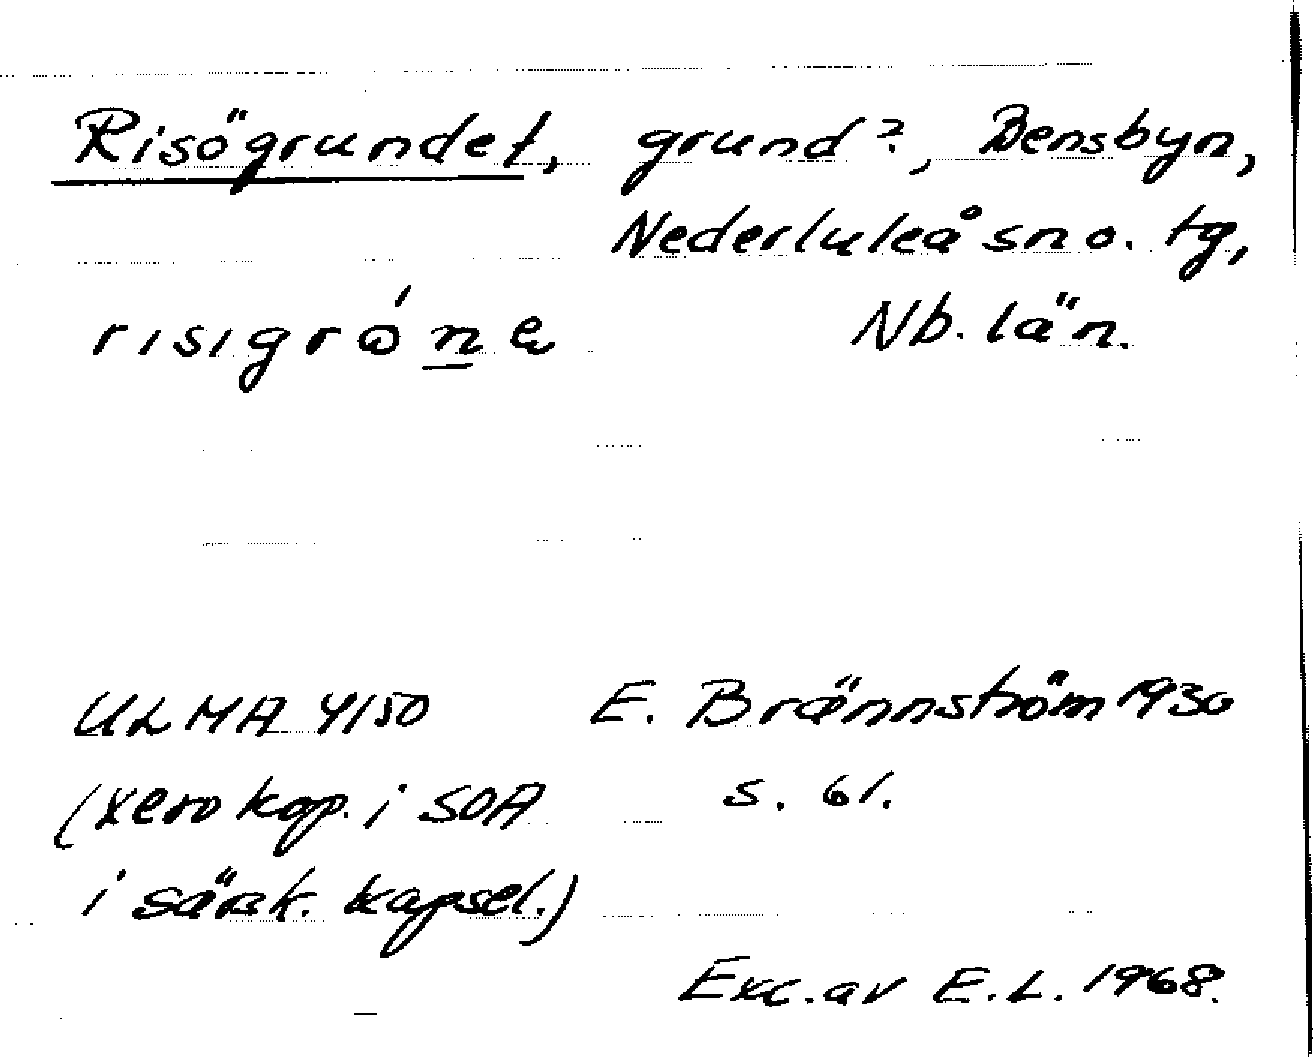 Risögrundet, grund?, Bensbyn,
Nederluleå sno. tg,
risigróna Nb. län.
ULMA 4150 E. Brännström 1930
(xerokop. i SOA s. 61.
i särsk. kapsel.)
Exc. av E.L. 1968.